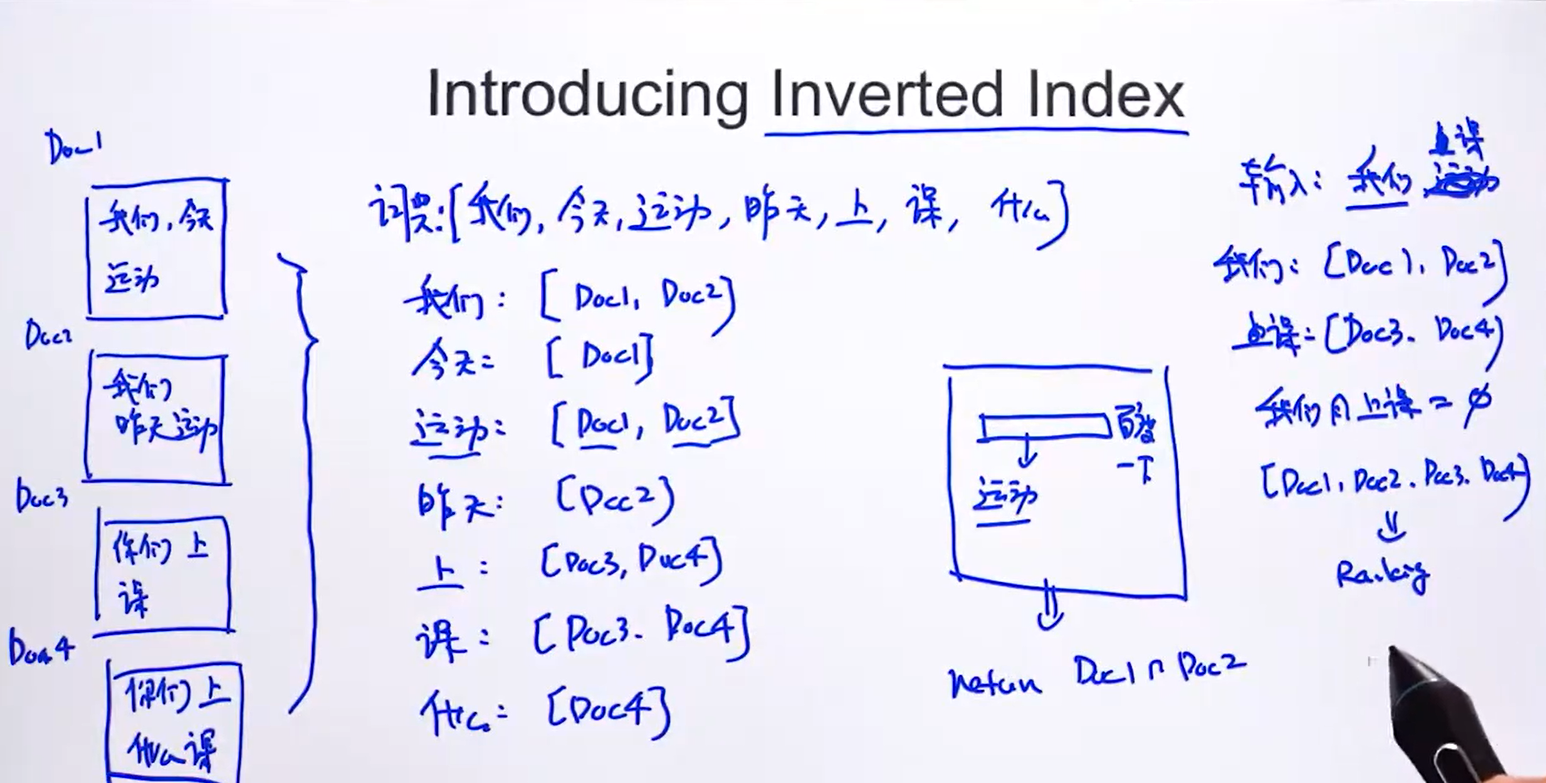 Introducing Inverted Index
Doc1
我们,今天
运动
Doc2
我们
昨天运动
Doc3
你们上
课
Doc4
你们上
什么课
词典:[我们,今天,运动,昨天,上,课,什么]
我们: [Doc1, Doc2]
今天: [Doc1]
运动: [Doc1, Doc2]
昨天: [Doc2]
上: [Doc3, Doc4]
课: [Doc3. Doc4]
什么: [Doc4]
百度
一下
运动
return Doc1 ∩ Doc2
上课
输入: 我们 运动
我们: [Doc1, Doc2]
上课: [Doc3. Doc4]
我们 ∩ 上课 = ∅
[Doc1, Doc2. Doc3. Doc4]
Ranking